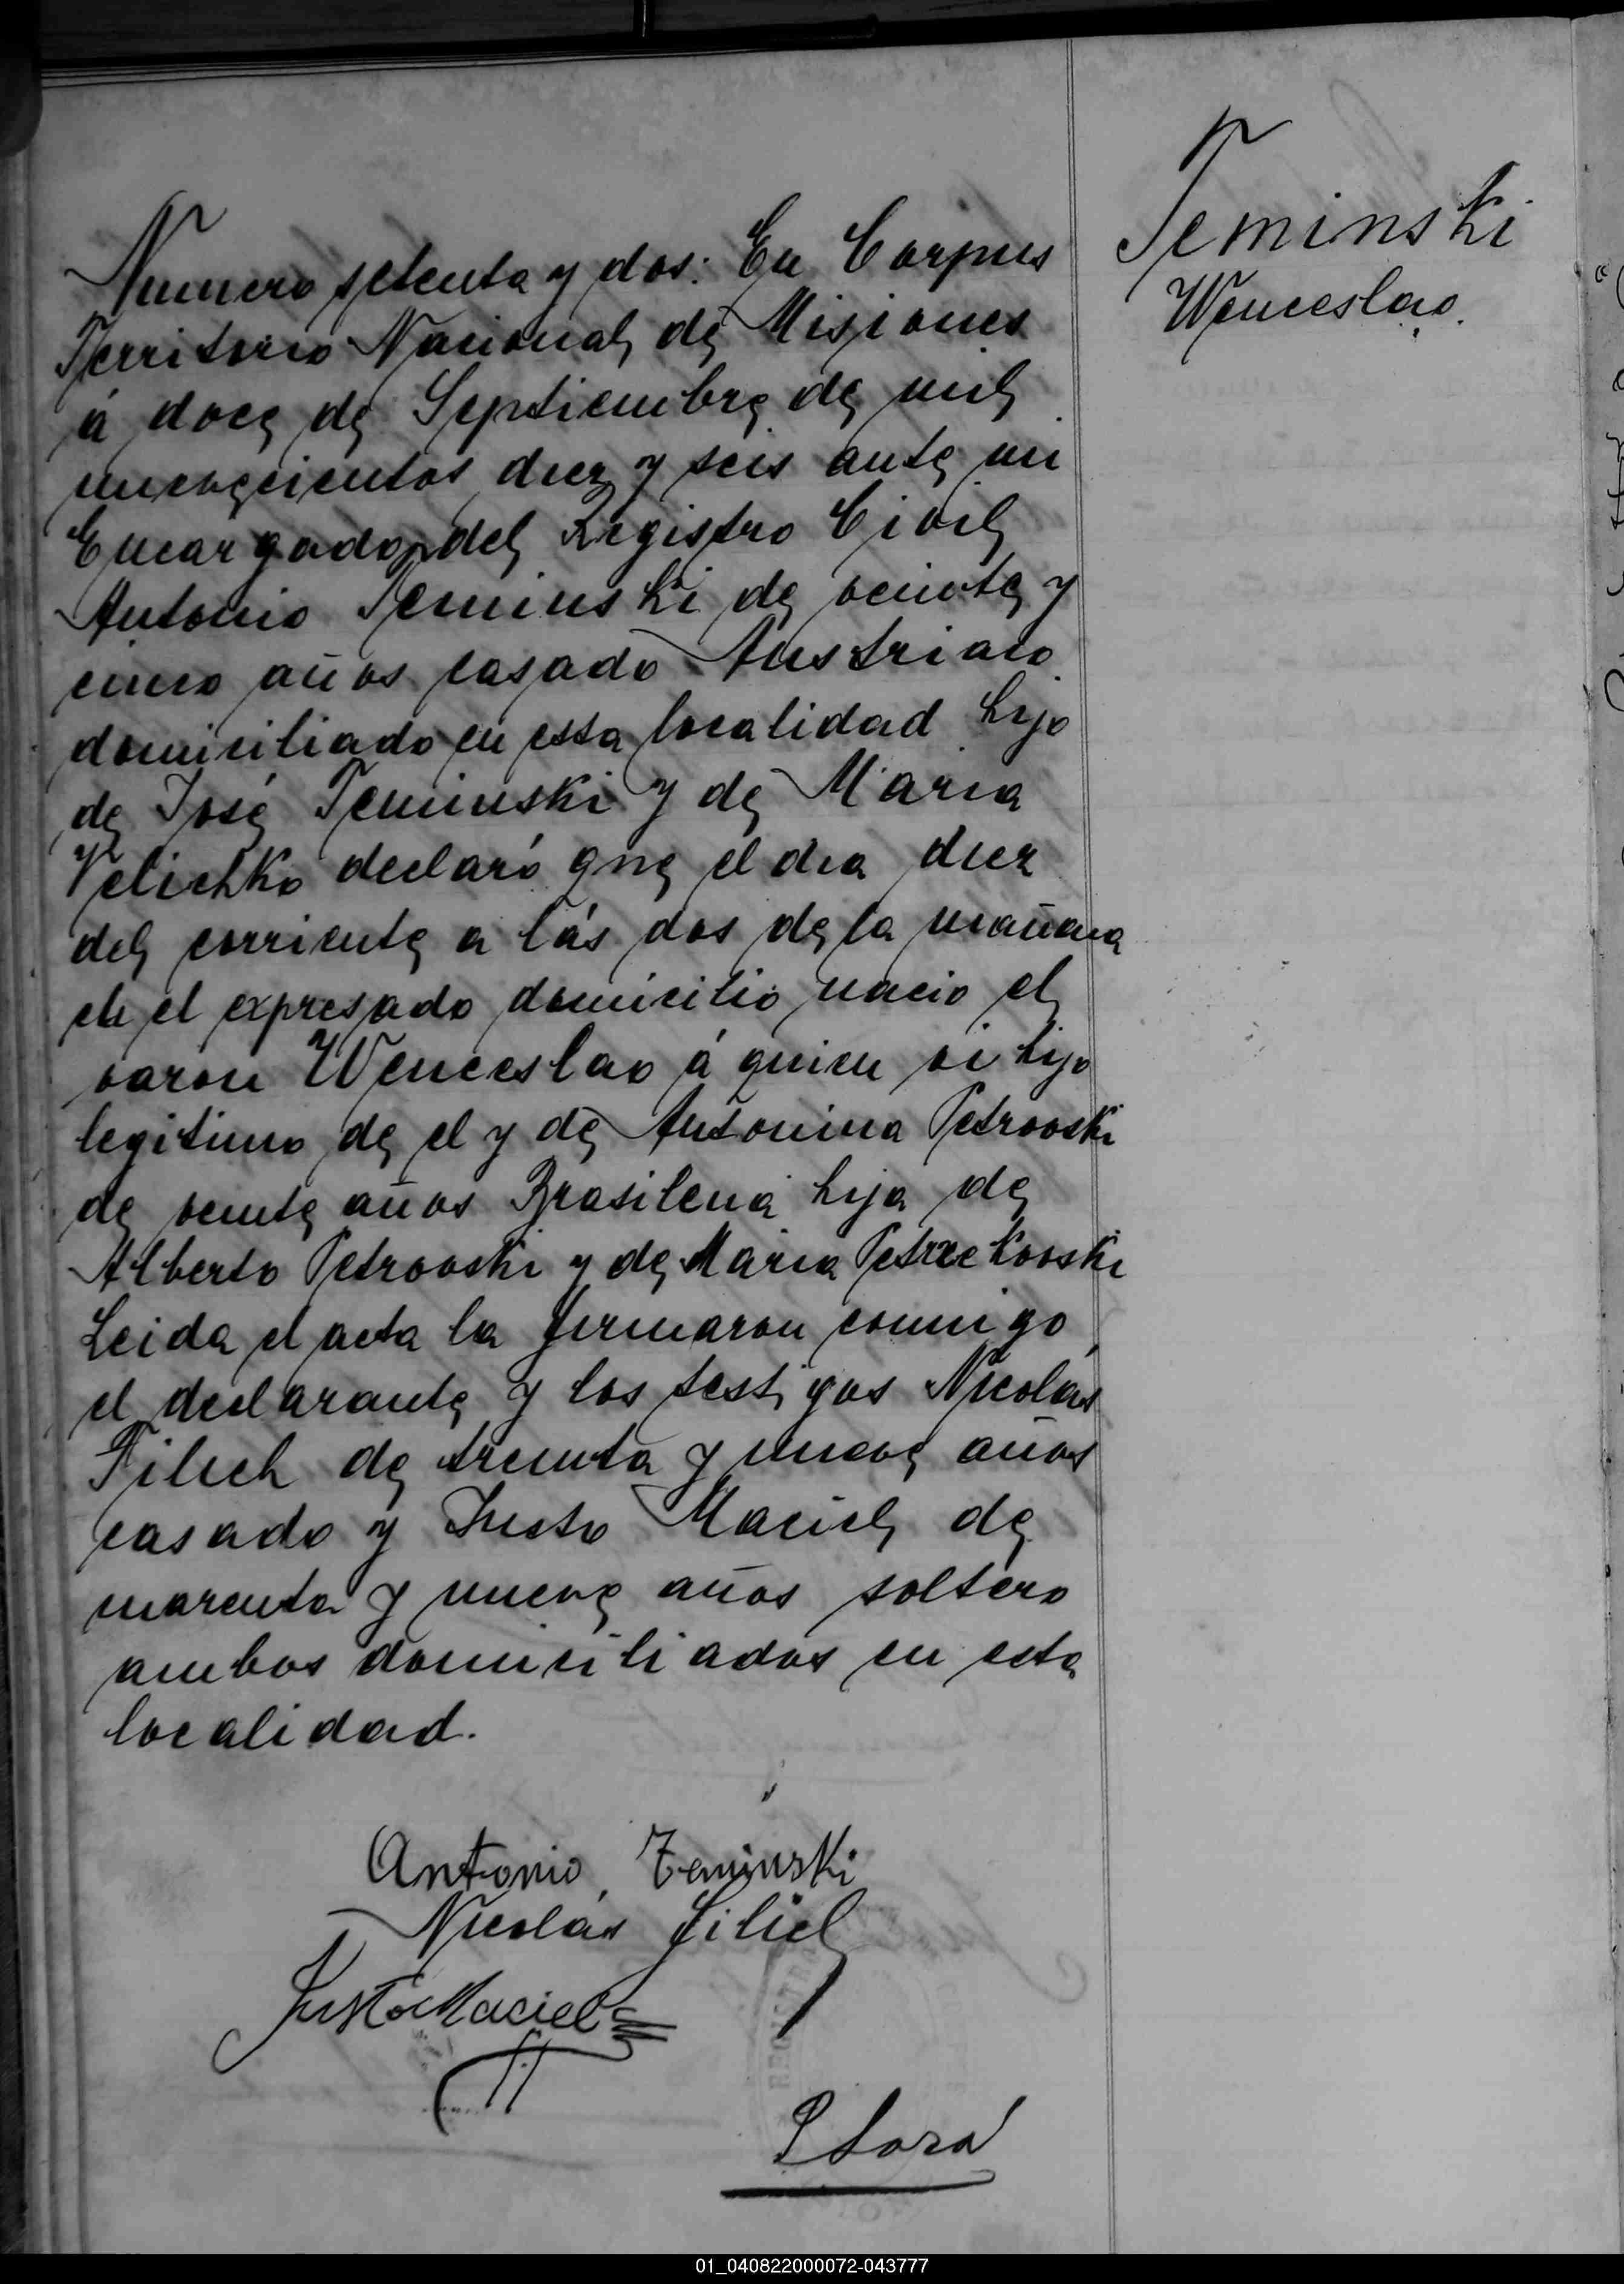 Numero setenta y dos: En Corpus
Territorio Nacional de Misiones
á doce de Septiembre de mil
novecientos diez y seis ante mi
Encargado del Registro Civil
Antonio Teminski de veinte y
cinco años casado Austriaco
domiciliado en esta localidad hijo
de José Teminski y de Maria
Velichko declaró que el dia diez
del corriente a lás dos de la mañana
en el expresado domicilio nacio el
varon Wenceslao á quien vi hijo
legitimo de el y de Antonina Petrovski
de veinte años Brasilena hija de
Alberto Petrovski y de Maria Petrzekovski
Leida el acta la firmaron conmigo
el declarante y los testigos Nicolás
Filich de treinta y nueve años
casado y Justo Maciel de
cuarenta y nueve años soltero
ambos domiciliados en esta
localidad.
Antonio Teminski
Nicolás Filich
Justo Maciel
Teminski
Wenceslao.
01_040822000072-043777